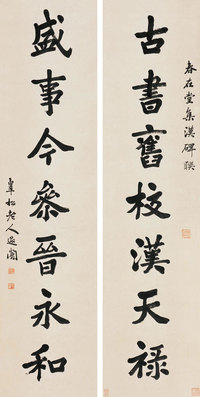 春在堂集漢碑聯
古書舊校漢天祿
盛事今參晉永和
老人